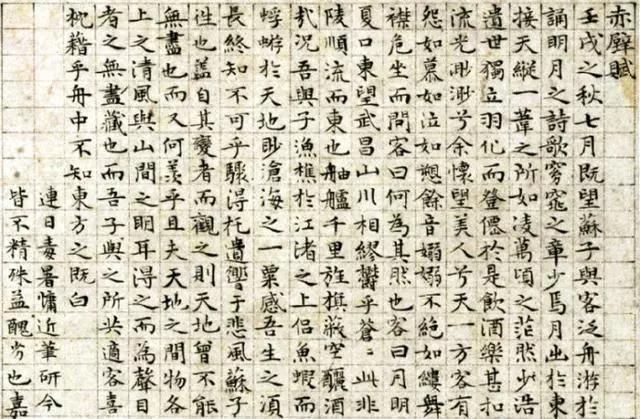 赤壁賦
壬戌之秋七月既望蘇子與客泛舟游於
誦明月之詩歌窈窕之章少焉月出於東
接天縱一葦之所如凌萬頃之茫然少浩
遺世獨立羽化而登僊於是飲酒樂甚扣
流光渺渺兮余懷望美人兮天一方客有
怨如慕如泣如愬餘音嫋嫋不絕如縷舞
襟危坐而問客曰何為其然也客曰月明
夏口東望武昌山川相繆鬱乎蒼〻此非
陵順流而東也舳艫千里旌旗蔽空釃酒
哉況吾與子漁樵於江渚之上侶魚蝦而
蜉蝣於天地眇滄海之一粟感吾生之須
長終知不可乎驟得托遺響于悲風蘇子
性也蓋自其變者而觀之則天地曾不能
無盡也而又何羨乎且夫天地之間物各
上之清風與山間之明耳得之而為聲目
者之無盡藏也而吾子與之所共適客喜
枕藉乎舟中不知東方之既白
連日毒暑慵近筆研今
皆不精殊益醜劣也嘉